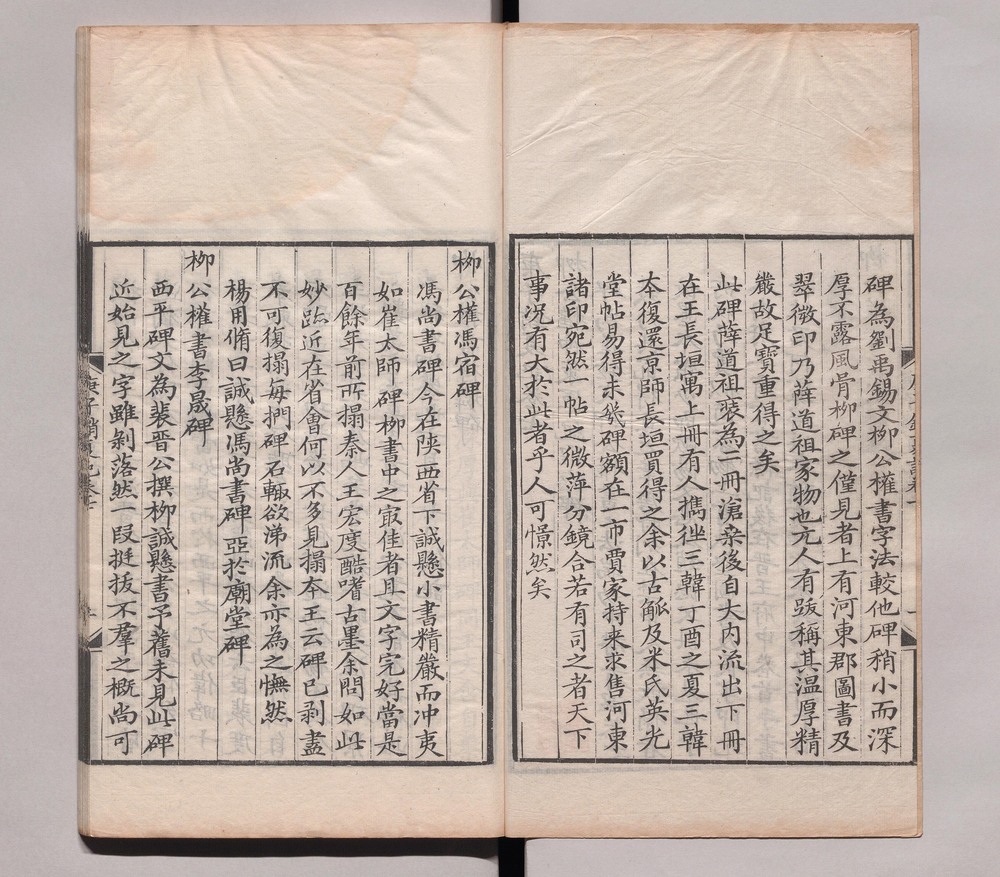 碑為劉禹錫文柳公權書字法較他碑稍小而深
厚不露風骨柳碑之僅見者上有河東郡圖書及
翠微印乃薛道祖家物也元人有跋稱其溫厚精
嚴故足寶重得之矣
此碑薛道祖裒為二冊滄桒後自大內流出下冊
在王長垣寓上冊有人攜徃三韓丁酉之夏三韓
本復還京師長垣買得之余以古觚及米氏英光
堂帖易得未幾碑額在一市賈家持来求售河東
諸印宛然一帖之微萍分鏡合若有司之者天下
事況有大於此者乎人可憬然矣
柳公權馮宿碑
馮尚書碑今在陝西省下誠懸小書精嚴而冲夷
如崔太師碑柳書中之㝡佳者且文字完好當是
百餘年前所搨秦人王宏度酷嗜古墨余問如此
妙跡近在省會何以不多見搨本王云碑已剥盡
不可復搨每捫碑石輙欲涕流余亦為之憮然
楊用脩曰誠懸馮尚書碑亞於廟堂碑
柳公權書李晟碑
西平碑文為裴晉公撰柳誠懸書予舊未見此碑
近始見之字雖剝落然一段挺拔不羣之概尚可